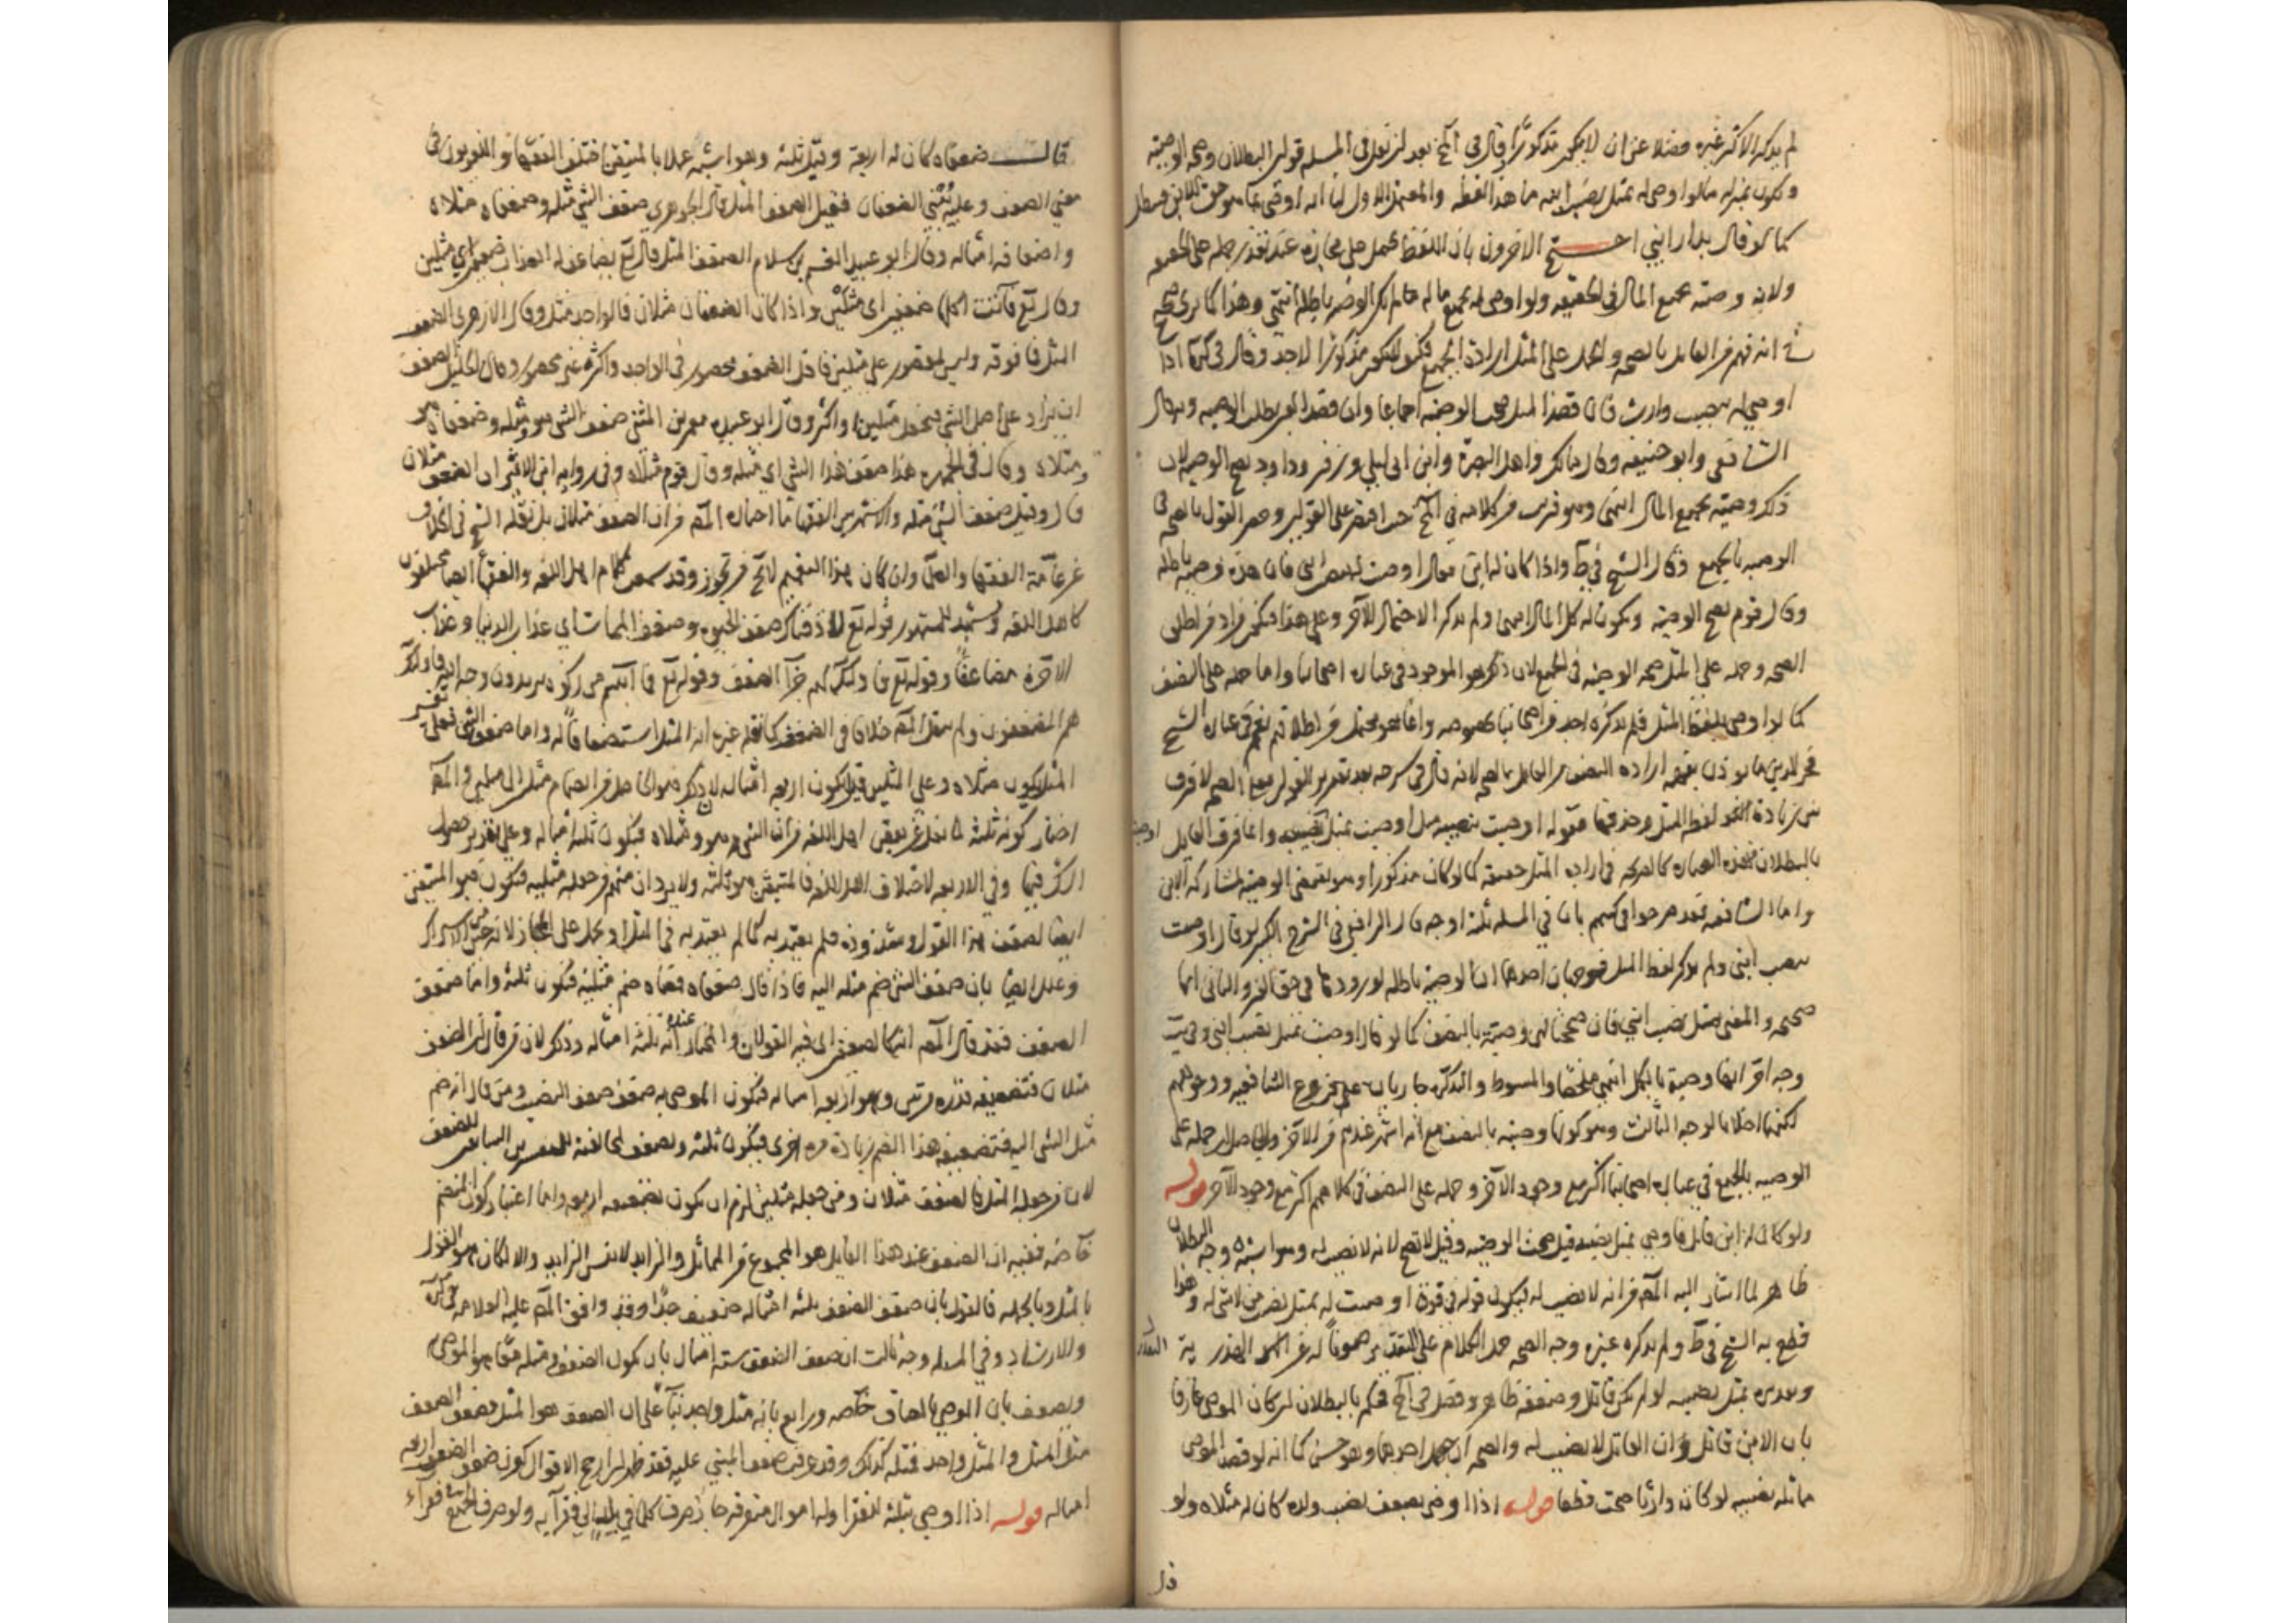 لم يذكر الاكثر غيره فضلا عن ان لا يكون مذكورا وقال في بعد ان نقل في المسئلة قولى البطلان وصحة الوصية
ويكون بمنزلة ما لو اوصى له بمثل نصيب ابنه من هذا اللفظ والمعتمد الاول لنا انه اوصى
كما لو قال بدار ابني احتج الاخرون بان اللفظ يحمل على مجازه عند تعذر حمله على الحقيقة
ولانه وصية بجميع المال في الحقيقة ولو اوصى له بجميع ماله لم يكن الوصية باطلة انتهى وهذا كما ترى صريح
في انه فهم من القايل بالصحة والحمل على المثل ارادة الجميع فكيف لا يكون مذكورا لاحد وقال في كره اذا
اوصى له بنصيب وارث فان قصد المثل صحت الوصية اجماعا وان قصد العين بطلت الوصية وبه قال
الشافعي وابو حنيفة وقال مالك واهل البصرة وابن ابي ليلى وزفر وداود يصح الوصية لان
ذكر وصيته بجميع المال انتهى وهو قريب من كلامه في حيث اقتصر على القولين وحصر القول بالصحة في
الوصية بالجميع وقال الشيخ في ط واذا كان له ابن فقال اوصيت له بنصيب ابني فان هذه وصية باطلة
وقال قوم يصح الوصية ويكون له كل المال انتهى ولم يذكر الاحتمال الاخر وعلى هذا فيكون مراد من اطلق
الصحة وحمله على المثل صحة الوصية في الجميع لان ذكره هو الموجود في عبارة اصحابنا واما حمله على النصف
كما لو اوصى بلفظ المثل فلم يذكره احد من اصحابنا بخصوصه وانما هو محتمل من اطلاقهم نعم في عبارة الشيخ
فخر الدين ما يؤذن بفهمه ارادة النصف من القايل بالصحة لانه قال في شرحه بعد تقرير القول بالصحة لا فرق
بين زيادة لفظ المثل وحذفها فقوله اوصيت بنصيبه مثل اوصيت بمثل نصيبه وانما فرق القايل
بالبطلان هذه العبارة كالصريحة في ارادة المثل حقيقة كما لو كان مذكورا وهو يقتضي الوصية لمشاركة الابن
واما الشافعية فقد صرحوا في كتبهم بان في المسئلة ثلثة اوجه قال الرافعي في الشرح الكبير لو قال اوصيت
بنصيب ابني ولم يذكر لفظ المثل فوجهان احدهما ان الوصية باطلة لورودها في حق الغير والثاني انها
صحيحة والمعنى بمثل نصيب ابني فان صححنا فهي وصية بالنصف كما لو قال اوصيت بمثل نصيب ابني وفي
وجه اخر انها وصية بالكل انتهى ملخصا والمبسوط والتذكرة جاريان على فروع الشافعية ووجوههم
لكنهما اخلا بالوجه الثالث وهو كونها وصية بالنصف مع انه اشهر عندهم من الاخر والحاصل ان حمله على
الوصية بالجميع في عبارة اصحابنا اكثر مع وجود الآخر وحمله على النصف في كلامهم اكثر مع وجود الآخر قوله
ولو كان له ابن قاتل فاوصى بمثل نصيبه قيل صحت الوصية وقيل لا تصح لانه لا نصيب له وهو اشبه وجه البطلان
ظاهر لما اشار اليه المص من انه لا نصيب له فيكون قوله في قوة اوصيت له بمثل نصيب من لا شئ له وهذا
قطع به الشيخ في ط ولم يذكر غيره وجه الصحة حمل الكلام على التقدير صونا له عن الهذر
وتقديره بمثل نصيبه لو لم يكن قاتلا وضعفه ظاهر وفصل في فحكم بالبطلان ان كان الموصي عارفا
بان الابن قاتل وان القاتل لا نصيب له والصحة ان جهل احدهما وهو حسن كما انه لو قصد الموصي
مماثلة نصيبه لو كان وارثا صحت قطعا قوله اذا اوصى بضعف نصيب ولده كان له مثلاه ولو
قال
قال ضعفاه كان له اربعة وقيل ثلثة وهو اشبه عملا بالمتيقن اختلف الفقهاء واللغويون في
معنى الضعف وعليه ينبني الضعفان فقيل الضعف المثل قال الجوهري ضعف الشئ مثله وضعفاه مثلاه
واضعافه امثاله وقال ابو عبيد القسم بن سلام الضعف المثل قال تع يضاعف لها العذاب ضعفين اي مثلين
وقال تع فآتت اكلها ضعفين اى مثلين واذا كان الضعفان مثلان فالواحد مثل وقال الازهري الضعف
المثل فما فوقه وليس بمقصور على مثلين فاقل الضعف محصور في الواحد واكثره غير محصور وقال الخليل الضعف
ان يزاد على اصل الشئ فيجعل مثلين او اكثر وقال ابو عبيدة معمر بن المثنى ضعف الشئ هو ومثله وضعفاه هو
ومثلاه وقال في الجمهرة هذا ضعف هذا الشئ اي مثله وقال قوم مثلاه وفي رواية ابن الاثير ان الضعف مثلان
قال وقيل ضعف الشئ مثله والاشهر بين الفقهاء ما اختاره المص من ان الضعف مثلان بل نقله الشيخ في الخلاف
عن عامة الفقهاء والعلماء وان كان هذا التعميم لا يخ من تجوز وقد سمعت كلام اهل اللغة والفقهاء ايضا مختلفون
كاهل اللغة ويستشهد للمشهور قوله تع لاذقناك ضعف الحيوة وضعف الممات اي عذاب الدنيا وعذاب
الاخرة مضاعفا وقوله تع فاولئك لهم جزاء الضعف وقوله تع وما آتيتم من زكوة تريدون وجه الله فاولئك
هم المضعفون ولم ينقل المص خلافا في الضعف كما نقله غيره انه المثل استضعافا له واما ضعفا الشئ فعلى تفسير
المثل يكون مثلاه وعلى المثلين قيل يكون اربعة امثال لان ذكره مثل الى مثليه والمص
اختار كونه ثلثة لما نقل عن بعض اهل اللغة من ان الشئ هو ومثلاه فيكون ثلثة امثاله وعلى تقدير حصول
الشك فيها وفي الاربعة لاختلاف اهل اللغة فالمتيقن هو ثلثة ولا يرد ان منهم من جعله مثليه فيكون هو المتيقن
ايضا لضعف هذا القول وشذوذه فلم يعتد به كما لم يعتد به في المثل او يحمل على المجاز لانه خير من الاشتراك
وعلل ايضا بان ضعف الشئ ضم مثله اليه فاذا قال ضعفاه فمعناه ضم مثليه فيكون ثلثة واما ضعف
الضعف فقد قال المص انهما كضعفين اى فيه القولان والمختار عنده انه ثلثة امثاله وذكر لان من قال ان الضعف
مثلان فتضعيفه قدره مرتين وهو اربعة امثاله فيكون الموصى به ضعف ضعف النصيب ومن قال انه ضم
مثل الشئ اليه فتضعيفه هذا الضم زيادة مرة اخرى فيكون ثلثة ويضعف لمخالفته للتفسيرين السابقين للضعف
لان من جعله المثل فالضعف مثلان ومن جعله مثلين لزم ان يكون تضعيفه اربعة واما اعتبار كون المنضم
خاصة ففيه ان الضعف عند هذا القايل هو المجموع من المماثل والزايد لا نفس الزايد والا لكان هو القول
بالمثل وبالجملة فالقول بان ضعف الضعف ثلثة امثاله ضعيف جدا وقد وافق المص عليه العلامة في كره
والارشاد وفي المسئلة وجه ثالث ان ضعف الضعف ستة امثال بان يكون الضعف ومثله معا هو الموصى
ويضعف بان الموصى المضاف خاصة ورابع بانه مثل واحد بناء على ان الضعف هو المثل فضعف الضعف
مثل المثل والمثل واحد فمثله كذلك وقد عرفت ضعف المبنى عليه فقد ظهر ان ارجح الاقوال كون ضعف الضعف اربعة
امثاله قوله اذا اوصى بثلثه للفقراء وله اموال متفرقة جاز صرف كل ما في بلد الى فقرآيه ولو صرف الجميع في فقراء